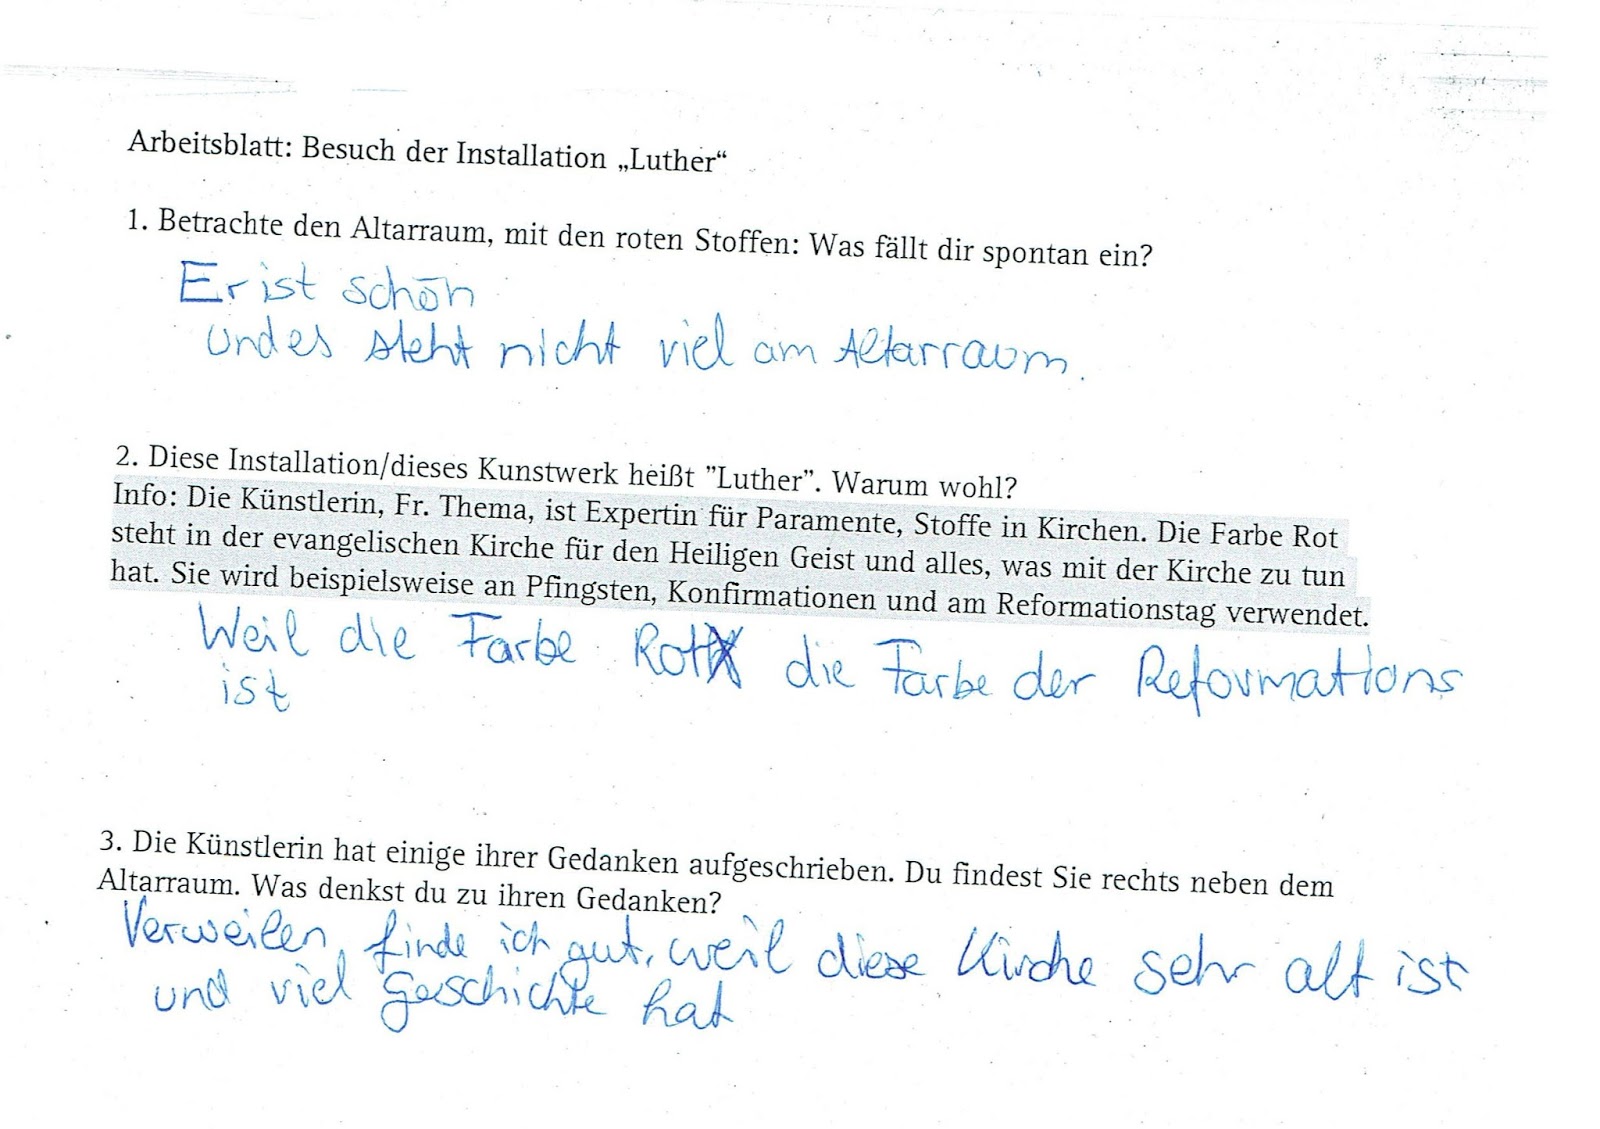 Arbeitsblatt: Besuch der Installation „Luther“
1. Betrachte den Altarraum, mit den roten Stoffen: Was fällt dir spontan ein?
Er ist schön
und es steht nicht viel am Altarraum.
2. Diese Installation/dieses Kunstwerk heißt "Luther". Warum wohl?
Info: Die Künstlerin, Fr. Thema, ist Expertin für Paramente, Stoffe in Kirchen. Die Farbe Rot
steht in der evangelischen Kirche für den Heiligen Geist und alles, was mit der Kirche zu tun
hat. Sie wird beispielsweise an Pfingsten, Konfirmationen und am Reformationstag verwendet.
Weil die Farbe Rot die Farbe der Reformations
ist
3. Die Künstlerin hat einige ihrer Gedanken aufgeschrieben. Du findest Sie rechts neben dem
Altarraum. Was denkst du zu ihren Gedanken?
Verweilen, finde ich gut, weil diese Kirche sehr alt ist
und viel Geschichte hat